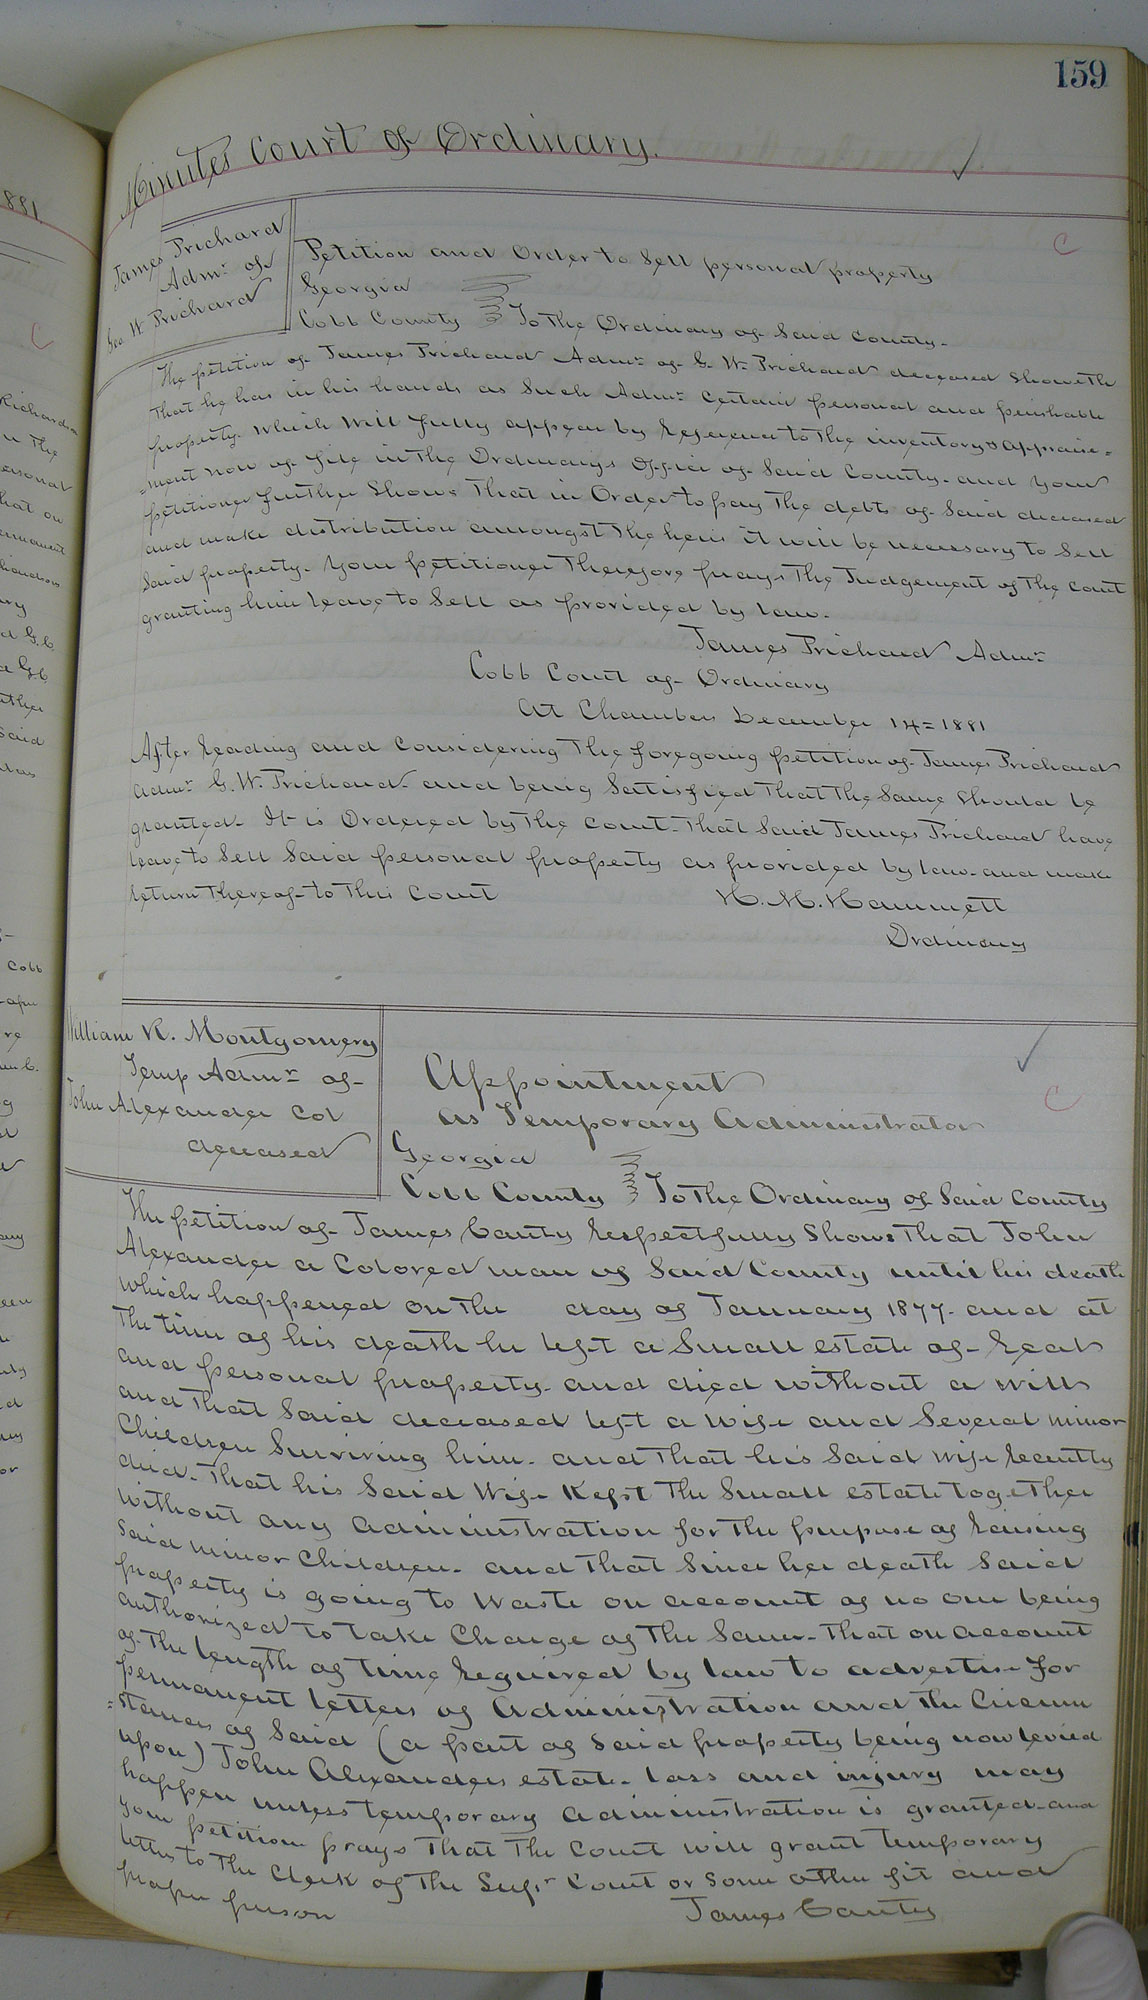 159
Minutes Court of Ordinary.
James Prichard
Admr of
Geo W Prichard
Petition and Order to Sell personal property
Georgia
Cobb County To the Ordinary of Said County.
The petition of James Prichard Admr of G. W. Prichard deceased Showeth
That he has in his hands as Such Admr Certain personal and perishable
property. which will fully appear by Reference to the inventory & appraise=
=ment now of file in the Ordinarys Office of Said County. and your
petitioner further Shows That in Order to pay The debts of Said deceased
and make distribution amongst The heirs it will be necessary to Sell
Said property. Your petitioner Therefore prays The Judgement of The Court
granting him leave to Sell as provided by law.
James Prichard Admr
Cobb Court of Ordinary
At Chambers December 14=1881
After Reading and Considering The foregoing petition of James Prichard
Admr G. W. Prichard and being Satisfied That The Same Should be
granted. It is Ordered by The Court. That Said James Prichard have
leave to Sell Said personal property as provided by law. and make
return Thereof to This Court
H. M. Hammett
Ordinary
William R. Montgomery
Temp Admr of
John Alexander Col
deceased
Appointment
as Temporary Administrator
Georgia
Cobb County To The Ordinary of Said County
The petition of James Canty Respectfully Shows That John
Alexander a Colored man of Said County until his death
which happened on The day of January 1877. and at
The time of his death he left a Small estate of Real
and personal property. and died without a will
and That Said deceased left a wife and Several minor
Children Surviving him. and That his Said wife Recently
died. That his Said Wife Kept The Small estate together
without any administration for The purpose of Raising
Said minor Children. and That Since her death Said
property is going to Waste on account of no one being
authorized to take Charge of The Same. That on account
of The length of time Required by law to advertise for
permanent letters of Administration and The Circum
=stances of Said (a part of Said property being now levied
upon) John Alexanders estate. loss and injury may
happen unless temporary administration is granted. and
your petition prays That The Court will grant temporary
letters to The Clerk of The Supr Court or Some other fit and
proper person
James Canty